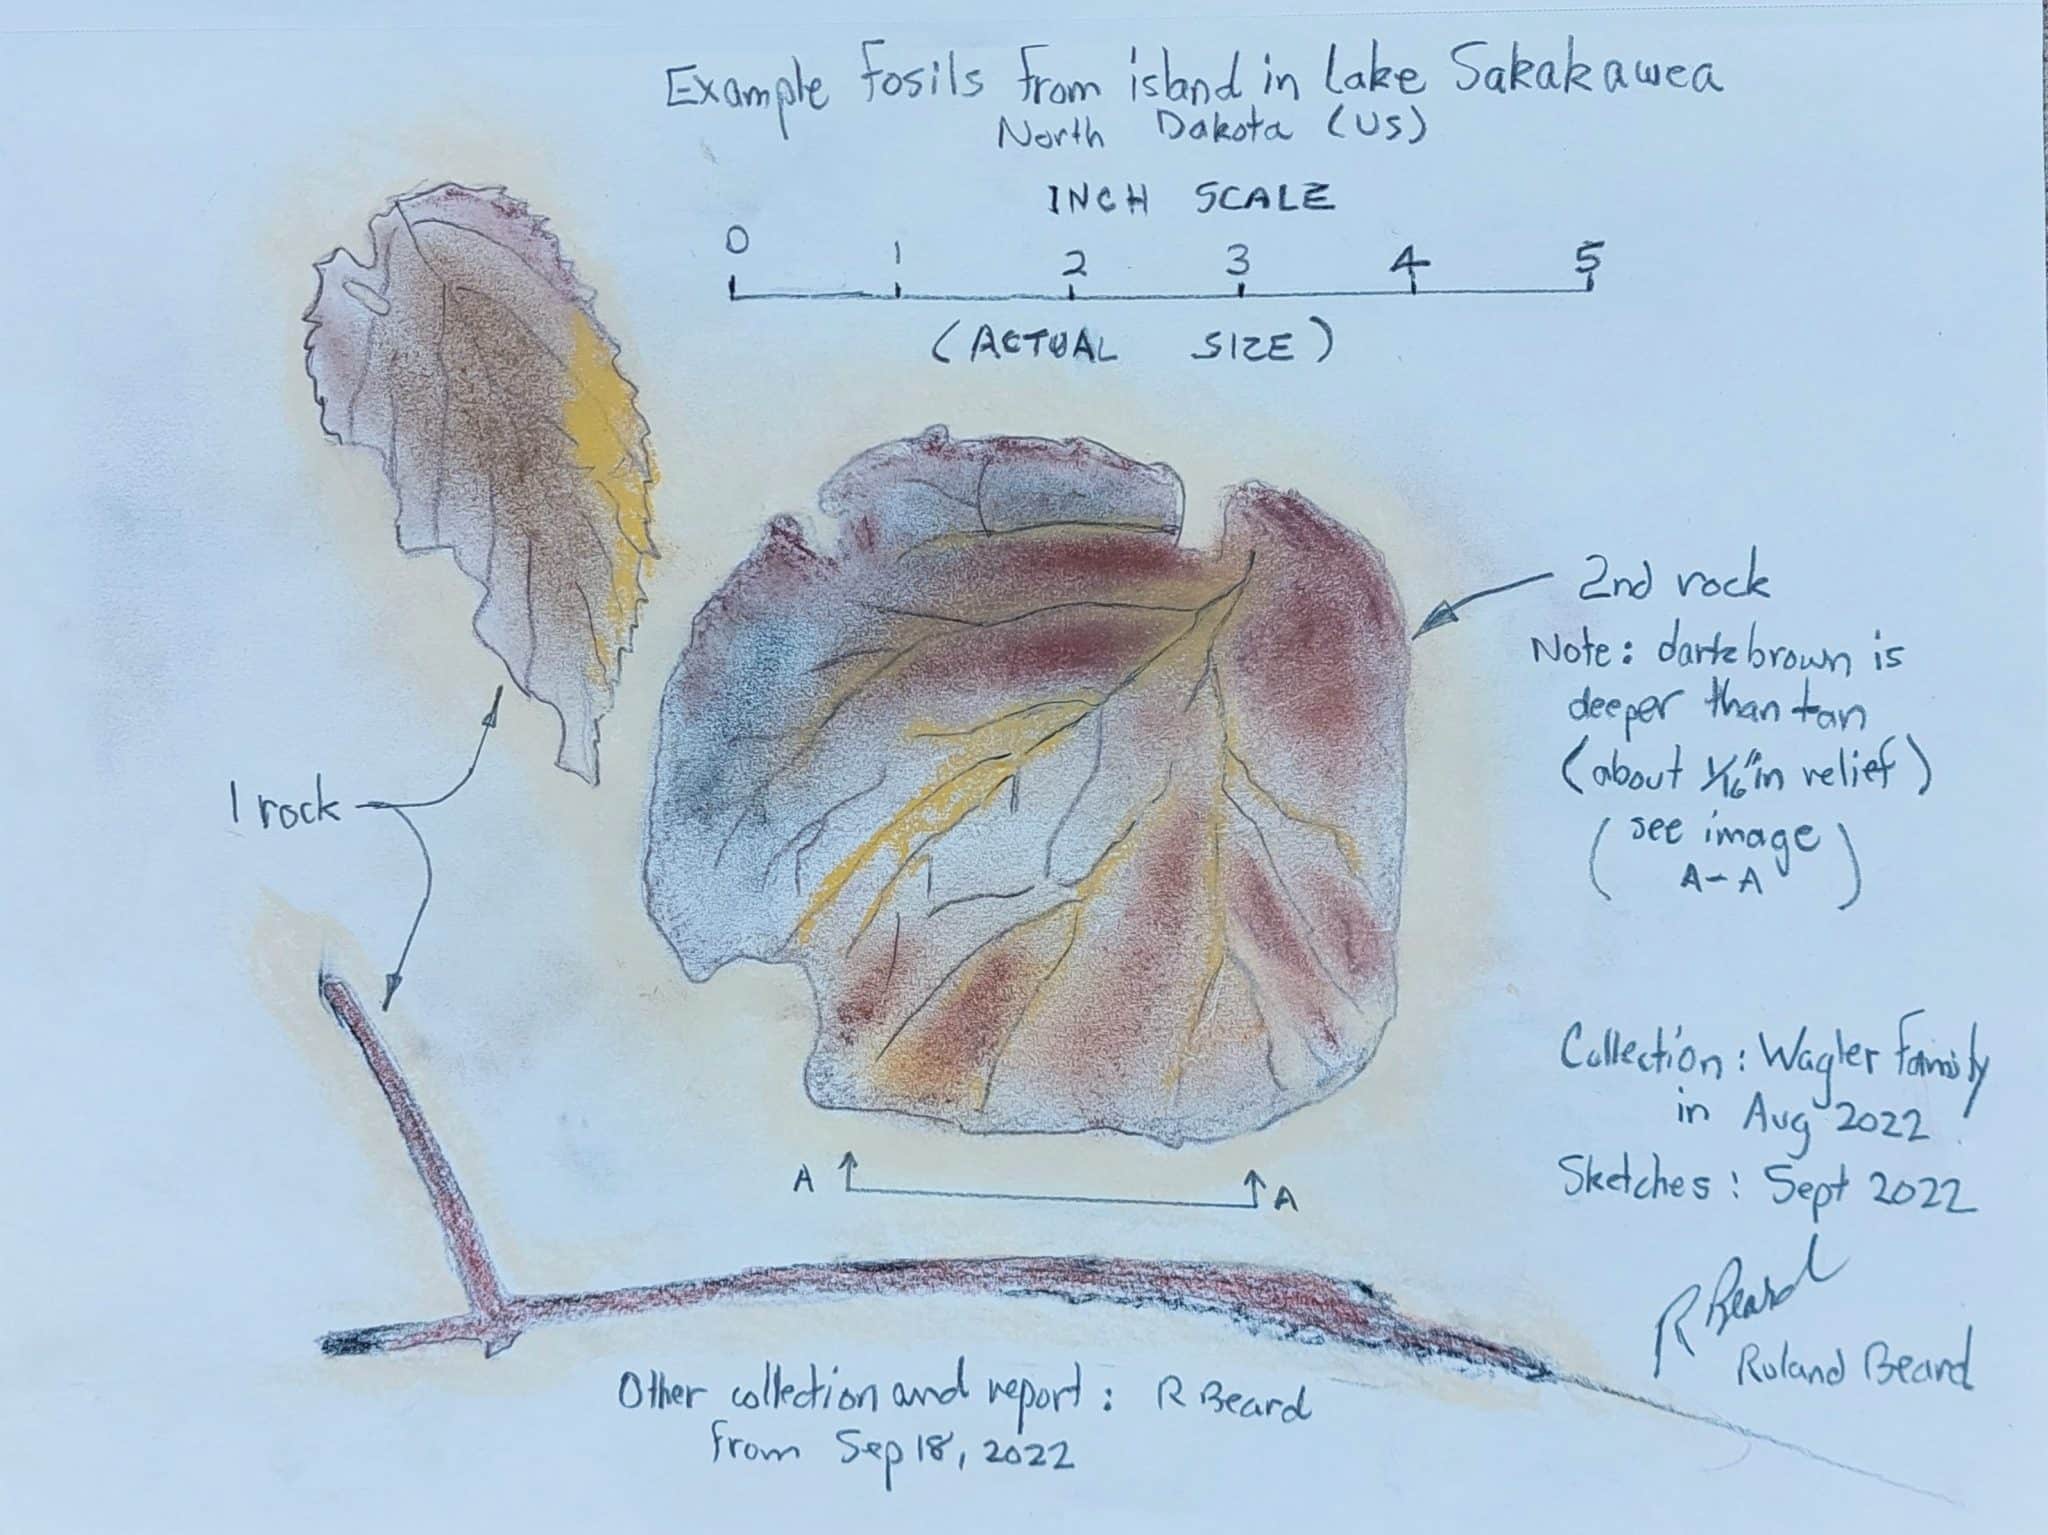 Example fosils from island in Lake Sakakawea
North Dakota (US)
INCH SCALE
0 1 2 3 4 5
(ACTUAL SIZE)
2nd rock
Note: dark brown is
deeper than tan
(about 1/16" in relief)
(see image
A-A)
1 rock
Collection: Wagler Family
in Aug 2022
Sketches: Sept 2022
A A
R Beard
Roland Beard
Other collection and report: R Beard
from Sep 18, 2022